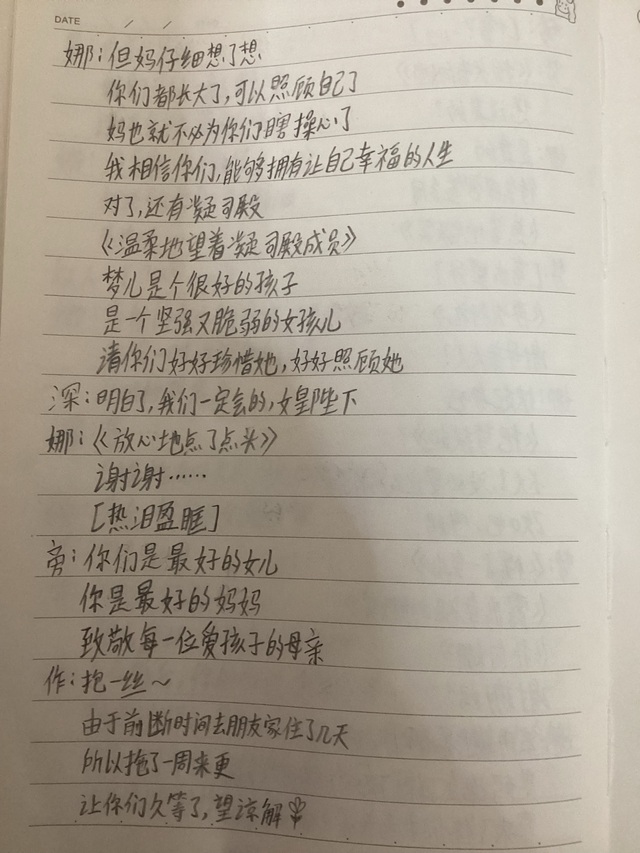 DATE / /
娜：但妈仔细想了想
你们都长大了，可以照顾自己了
妈也就不必为你们瞎操心了
我相信你们，能够拥有让自己幸福的人生
对了，还有凝司殿
《温柔地望着凝司殿成员》
梦儿是个很好的孩子
是一个坚强又脆弱的女孩儿
请你们好好珍惜她，好好照顾她
深：明白了，我们一定会的，女皇陛下
娜：《放心地点了点头》
谢谢……
[热泪盈眶]
旁：你们是最好的女儿
你是最好的妈妈
致敬每一位爱孩子的母亲
作：抱一丝～
由于前断时间去朋友家住了几天
所以拖了一周来更
让你们久等了，望谅解